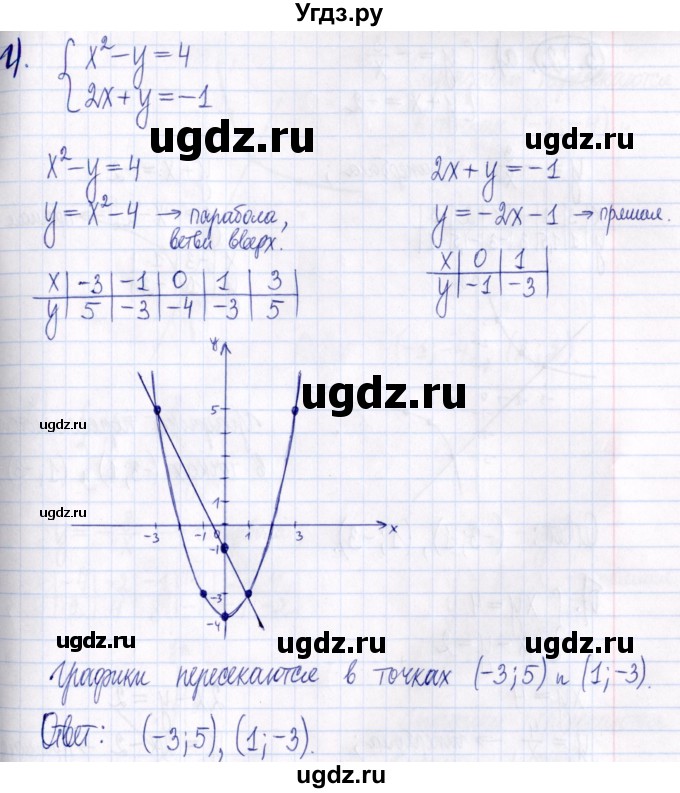 Угдз.ру
г). { x² − y = 4
2x + y = −1
ugdz.ru ugdz.ru
x² − y = 4 2x + y = −1
y = x² − 4 → парабола, ветви вверх. y = −2x − 1 → прямая.
x | −3 | −1 | 0 | 1 | 3
y | 5 | −3 | −4 | −3 | 5
x | 0 | 1
y | −1 | −3
y
5
ugdz.ru
ugdz.ru
ugdz.ru
1
ugdz.ru
−3 −1 0 1 3 x
−1
−3
−4
ugdz.ru ugdz.ru ugdz.ru
Графики пересекаются в точках (−3; 5) и (1; −3).
Ответ: (−3; 5), (1; −3).
ugdz.ru